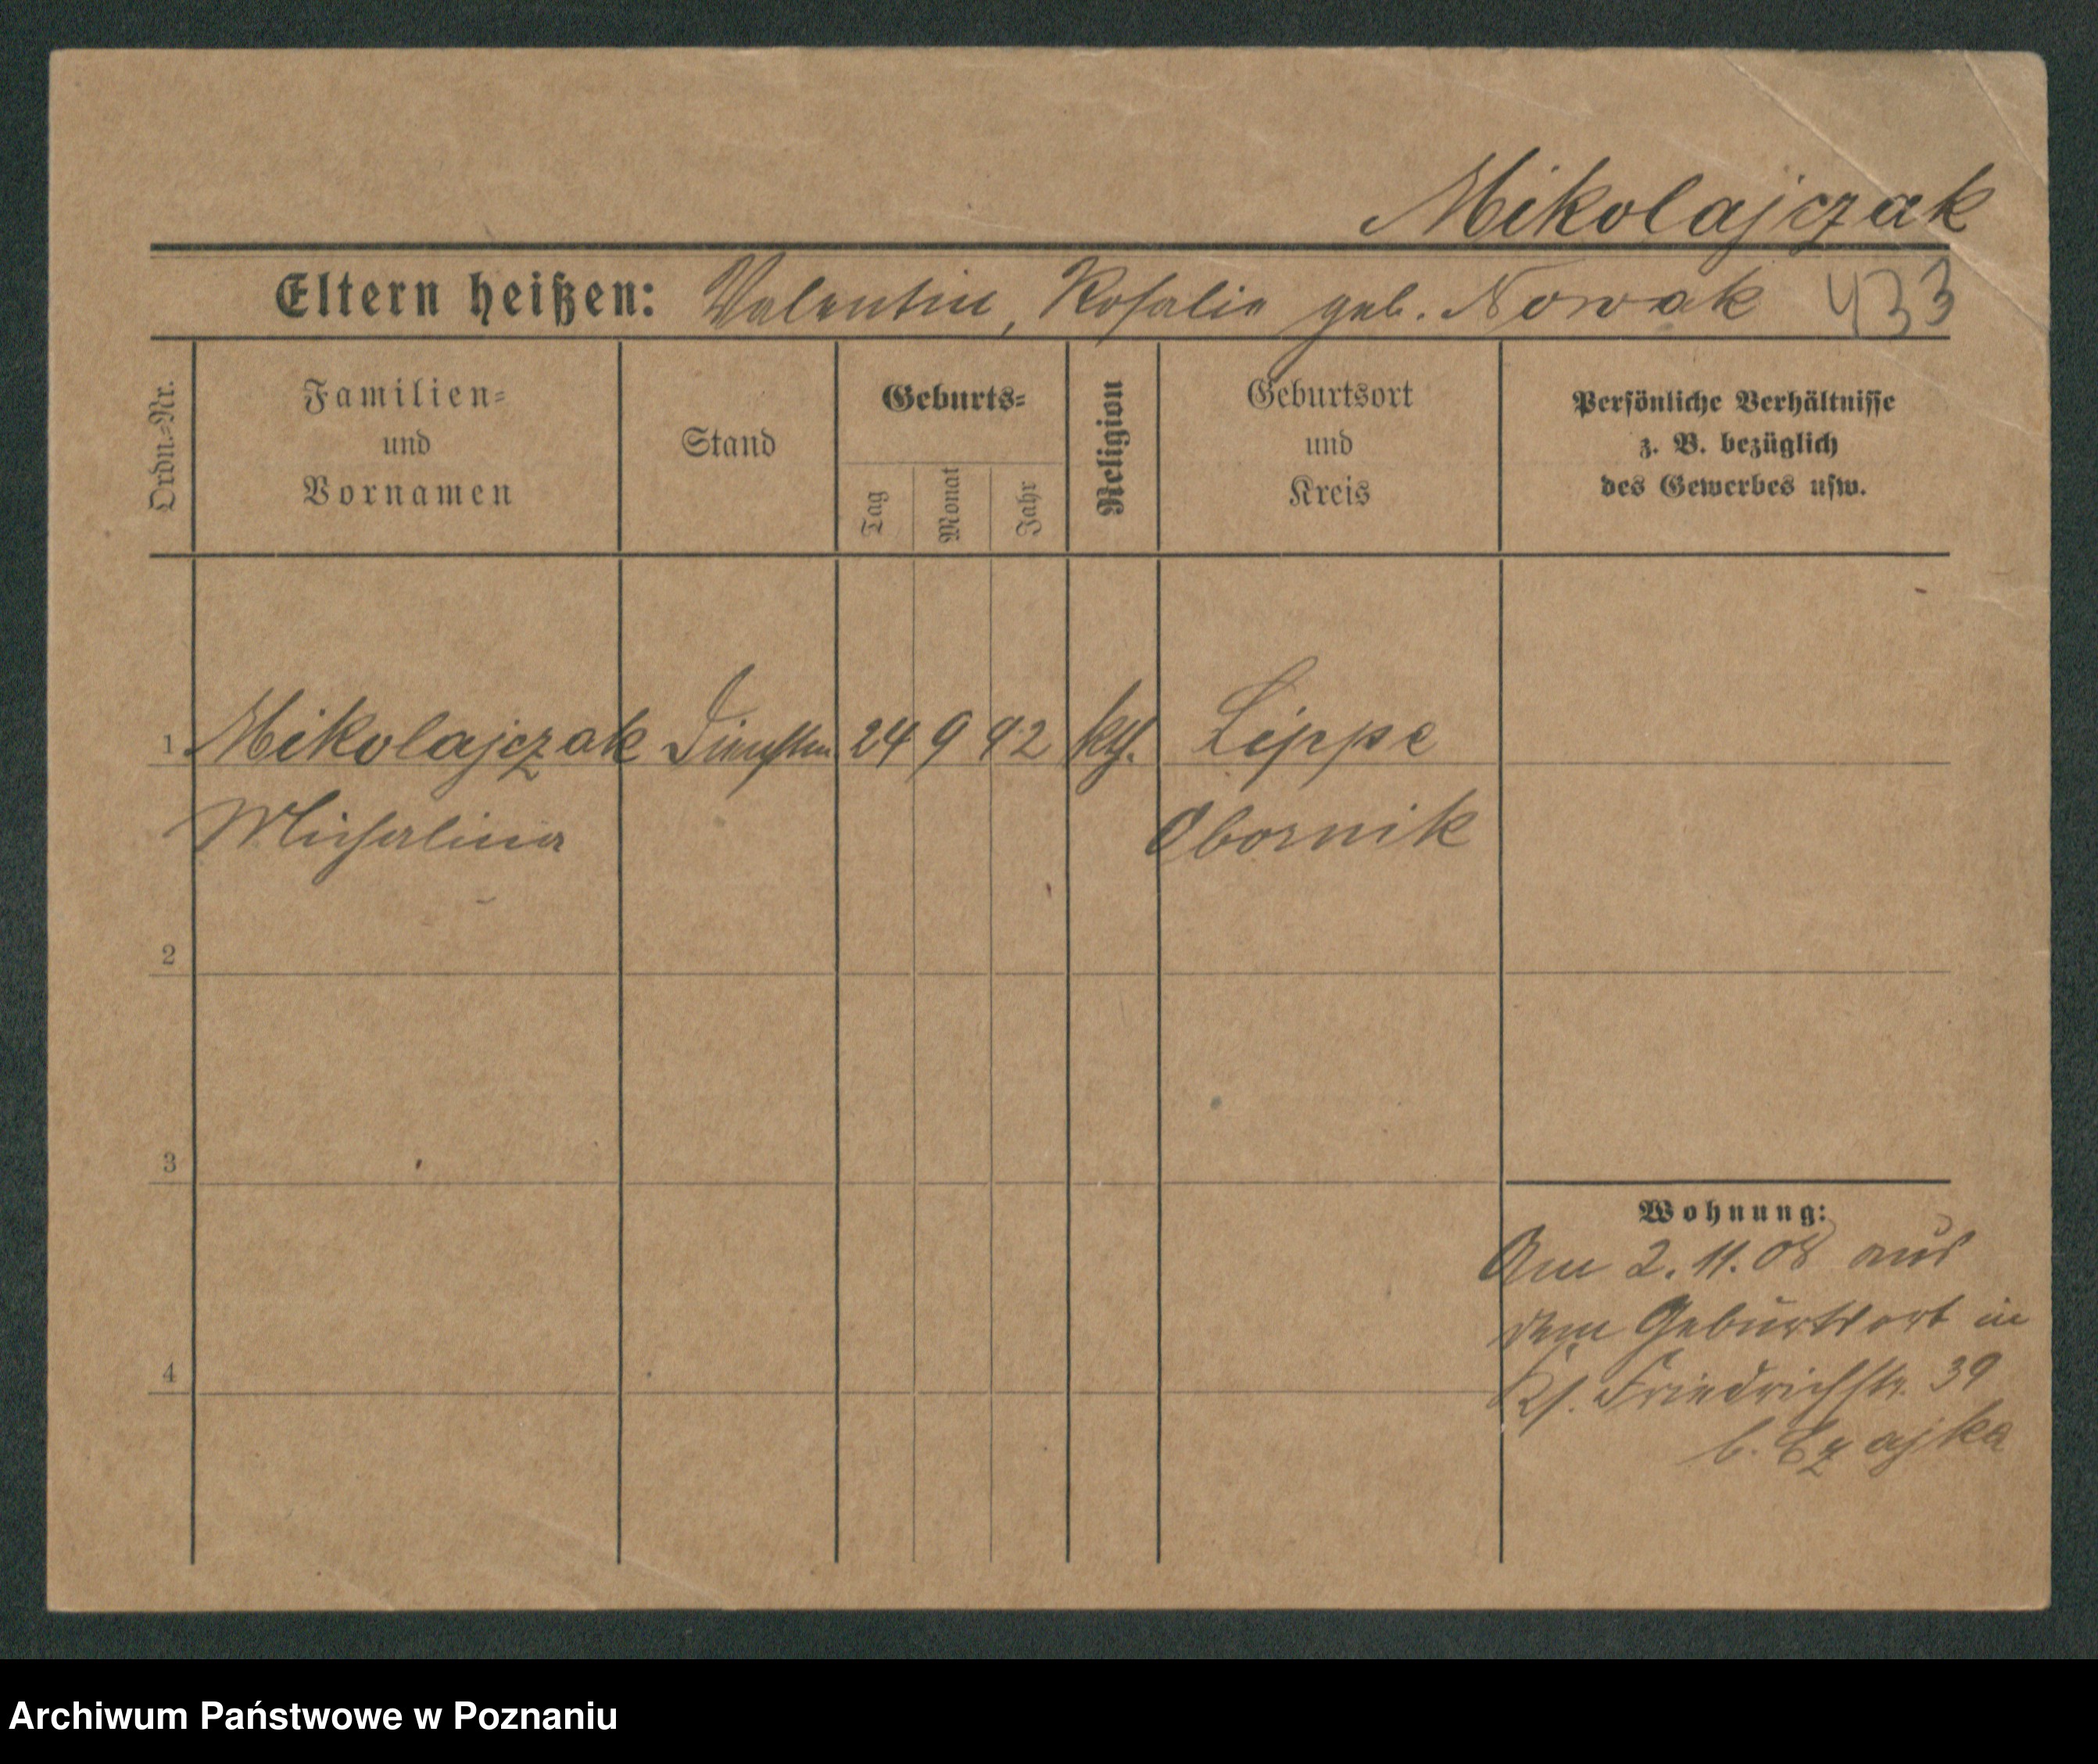 Mikolajczak
Eltern heißen: Valentin, Rosalie geb. Nowak 433
Ordn.=Nr.
Familien=
und
Vornamen
Stand
Geburts=
Tag
Monat
Jahr
Religion
Geburtsort
und
Kreis
Persönliche Verhältnisse
z. B. bezüglich
des Gewerbes usw.
1 Mikolajczak 24 9 92 kth. Lippe
Michalina Obornik
2
3
4
Wohnung:
Am 2. 11. 08 aus
dem Geburtsort in
Friedrichstr. 39
b. Czajka
Archiwum Państwowe w Poznaniu